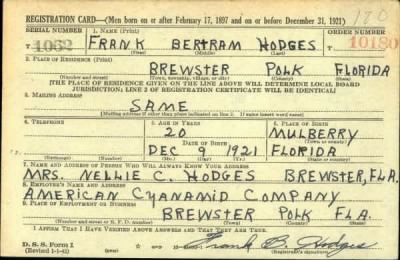 REGISTRATION CARD—(Men born on or after February 17, 1897 and on or before December 31, 1921) 180
SERIAL NUMBER 1. NAME (Print) ORDER NUMBER
T 1062 FRANK BERTRAM HODGES 10180
(First) (Middle) (Last)
2. PLACE OF RESIDENCE (Print)
BREWSTER POLK FLORIDA
(Number and street) (Town, township, village, or city) (County) (State)
[THE PLACE OF RESIDENCE GIVEN ON THE LINE ABOVE WILL DETERMINE LOCAL BOARD
JURISDICTION; LINE 2 OF REGISTRATION CERTIFICATE WILL BE IDENTICAL]
3. MAILING ADDRESS
SAME
[Mailing address if other than place indicated on line 2. If same insert word same]
4. TELEPHONE 5. AGE IN YEARS 6. PLACE OF BIRTH
20 MULBERRY
DATE OF BIRTH (Town or county)
DEC 9 1921 FLORIDA
(Exchange) (Number) (Mo.) (Day) (Yr.) (State or country)
7. NAME AND ADDRESS OF PERSON WHO WILL ALWAYS KNOW YOUR ADDRESS
MRS. NELLIE C. HODGES BREWSTER, FLA.
8. EMPLOYER'S NAME AND ADDRESS
AMERICAN CYANAMID COMPANY
9. PLACE OF EMPLOYMENT OR BUSINESS
BREWSTER POLK FLA.
(Number and street or R. F. D. number) (Town) (County) (State)
I AFFIRM THAT I HAVE VERIFIED ABOVE ANSWERS AND THAT THEY ARE TRUE.
D. S. S. Form 1
(Revised 1-1-42) (over) Frank B. Hodges
(Registrant's signature)